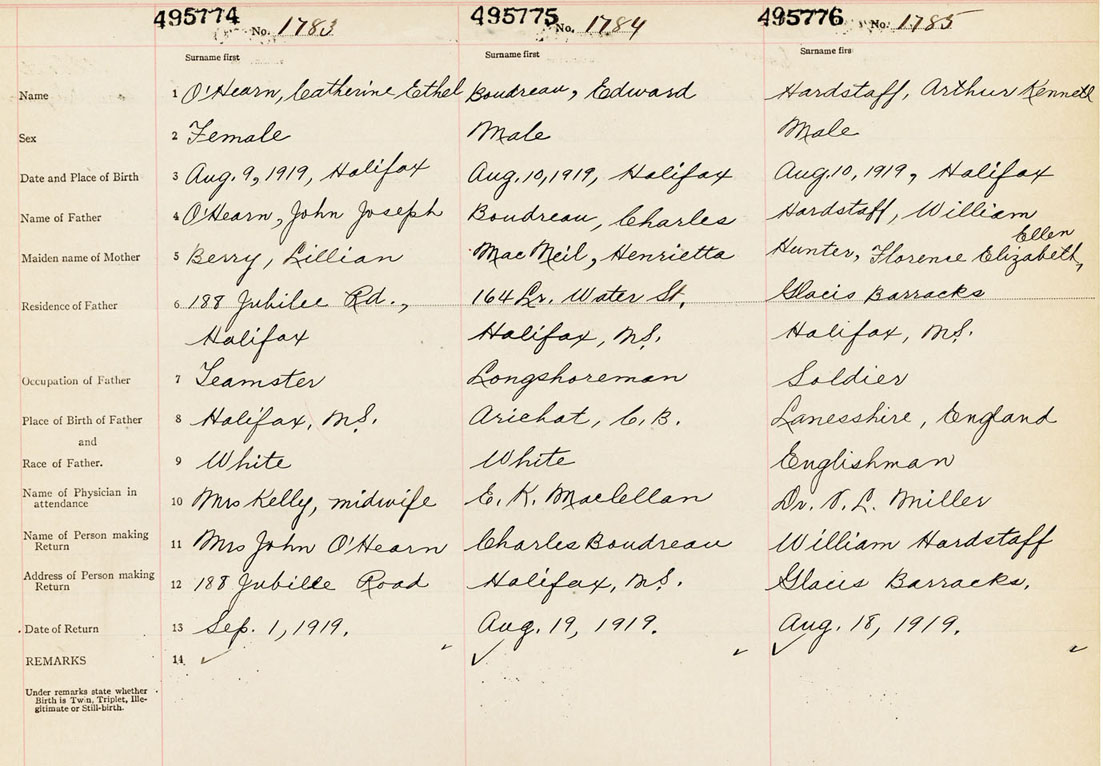 495774 No. 1783 495775 No. 1784 495776 No. 1785
Surname first Surname first Surname firs
Name 1 O'Hearn, Catherine Ethel Boudreau, Edward Hardstaff, Arthur Kenneth
Sex 2 Female Male Male
Date and Place of Birth 3 Aug. 9, 1919, Halifax Aug. 10, 1919, Halifax Aug. 10, 1919, Halifax
Name of Father 4 O'Hearn, John Joseph Boudreau, Charles Hardstaff, William
Ellen
Maiden name of Mother 5 Berry, Lillian MacNeil, Henrietta Hunter, Florence Elizabeth,
Residence of Father 6 188 Jubilee Rd., 164 Lr. Water St. Glacis Barracks
Halifax Halifax, N.S. Halifax, N.S.
Occupation of Father 7 Teamster Longshoreman Soldier
Place of Birth of Father 8 Halifax, N.S. Arichat, C.B. Lanesshire, England
and
Race of Father. 9 White White Englishman
Name of Physician in attendance 10 Mrs Kelly, midwife E. K. Maclellan Dr. L. Miller
Name of Person making Return 11 Mrs John O'Hearn Charles Boudreau William Hardstaff
Address of Person making Return 12 188 Jubilee Road Halifax, N.S. Glacis Barracks,
Date of Return 13 Sep. 1, 1919. Aug. 19, 1919. Aug. 18, 1919.
REMARKS 14
Under remarks state whether
Birth is Twin, Triplet, Ille-
gitimate or Still-birth.